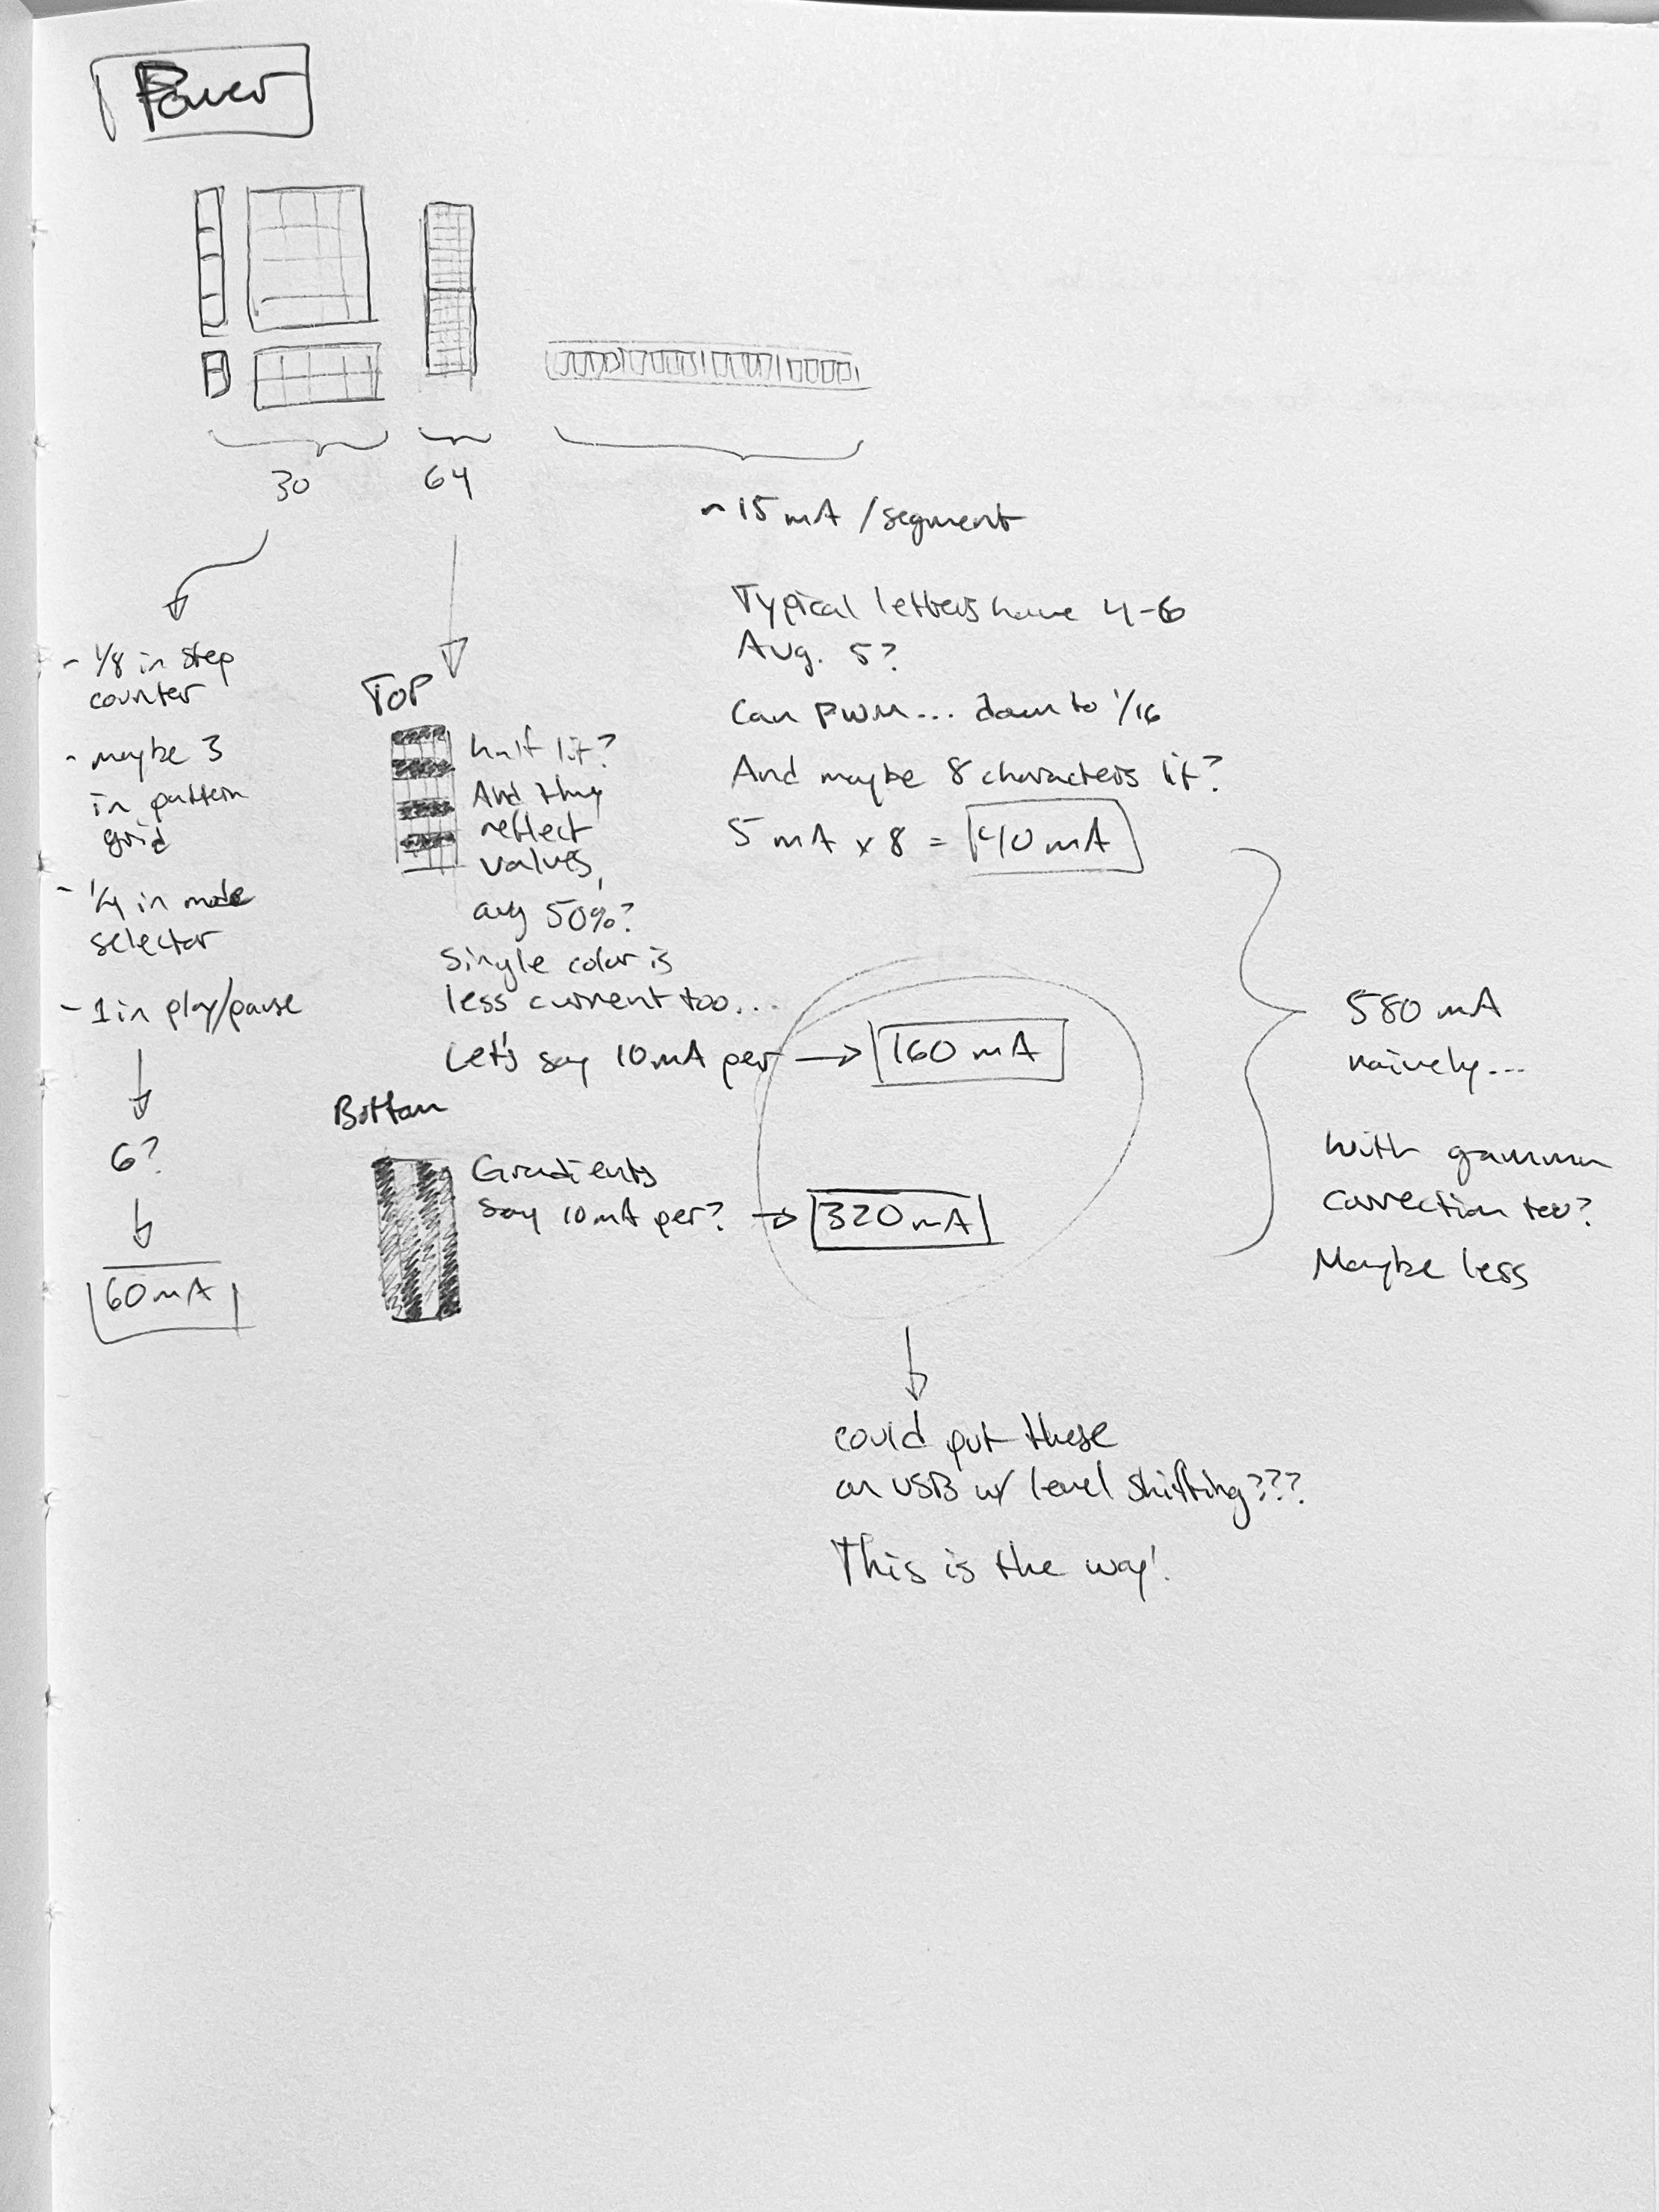 Power
30
64
~15 mA / segment
Typical letters have 4-6
Avg. 5?
Can PWM... down to 1/16
And maybe 8 characters lit?
5 mA x 8 = 40 mA
- 1/8 in step
counter
- maybe 3
in pattern
grid
- 1/4 in mode
selector
- 1 in play/pause
6?
60 mA
TOP
half lit?
And they
reflect
values,
avg 50%?
Single color is
less current too...
Let's say 10 mA per → 160 mA
Bottom
Gradients
Say 10 mA per? → 320 mA
580 mA
naively...
With gamma
correction too?
Maybe less
could put these
on USB w/ level shifting???
This is the way!